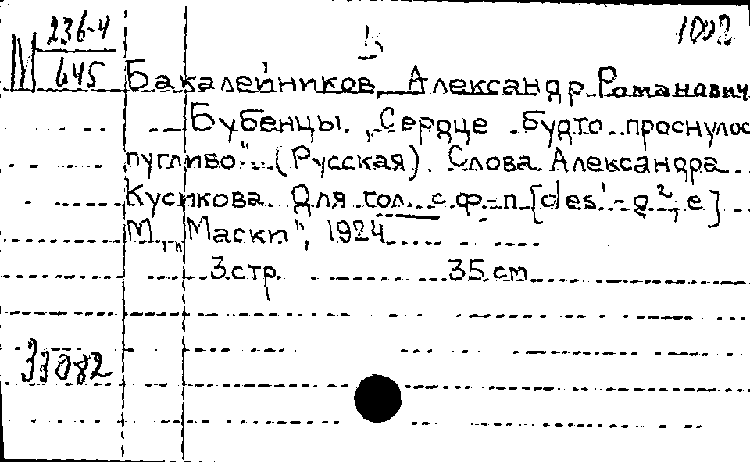 М 236-4
645
1002
Бакалейников, Александр Романович
Бубенцы. „Сердце будто проснулос
пугливо"... (Русская). Слова Александра
Кусикова. Для гол. с ф-п [des¹-g², e]
М., „Маски", 1924
3 стр. 35 cm
33082